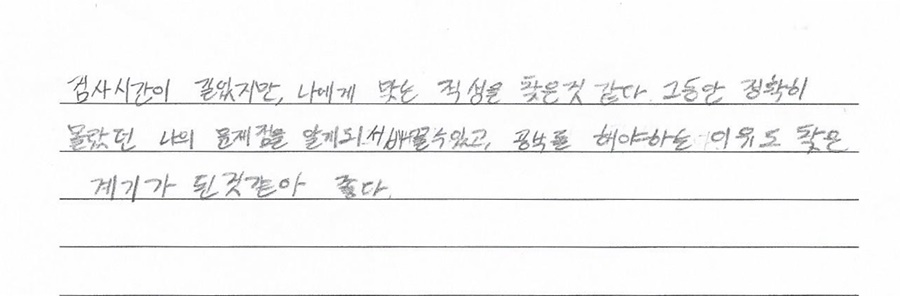 검사시간이 길었지만, 나에게 맞는 적성을 찾은것 같다. 그동안 정확히
몰랐던 나의 문제점을 알게되서 바꿀수있고, 공부를 해야하는 이유도 찾은
계기가 된것같아 좋다.